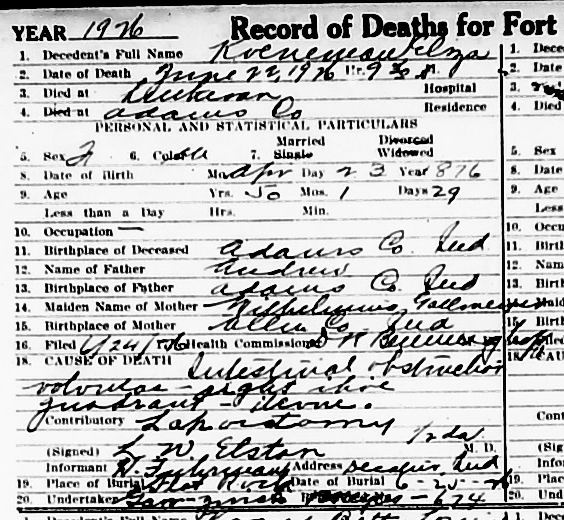 YEAR 1926 Record of Deaths for Fort
1. Decedent's Full Name Koeneman Elza
2. Date of Death June 22, 1926 Hr. 9 30 M.
3. Died at Lutheran Hospital
4. Died at Adams Co Residence
PERSONAL AND STATISTICAL PARTICULARS
Married Divorced
5. Sex F 6. Color W 7. Single Widowed
8. Date of Birth Mo. Apr Day 23 Year 876
9. Age Yrs. 50 Mos. 1 Days 29
Less than a Day Hrs. Min.
10. Occupation —
11. Birthplace of Deceased Adams Co. Ind
12. Name of Father Andrew
13. Birthplace of Father Adams Co. Ind
14. Maiden Name of Mother
15. Birthplace of Mother Allen Co. Ind
16. Filed 6/24/26 Health Commissioner
18. CAUSE OF DEATH Intestinal obstruction
volvulus - right
quadrant -
Contributory
1 nda
(Signed) L. W. Elston M. D.
Informant Address Decatur, Ind
19. Place of Burial Flat Rock Date of Burial 6-25-26
20. Undertaker 674
1. Dece
2. Date
3.
4. Died
5. Sex
8. Date
9. Age
Less
10. Occu
11. Birth
12. Nam
13. Birth
15. Birth
Cont
(Sig
Info
19. Plac
20. Und